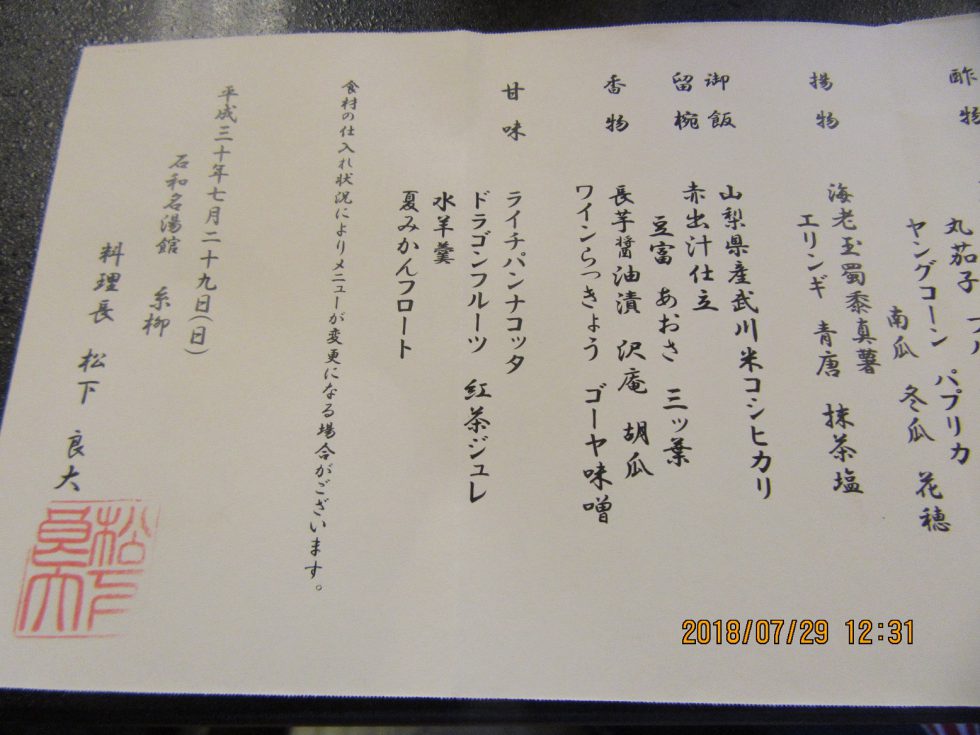 酢物
丸茄子
ヤングコーン パプリカ
南瓜 冬瓜 花穂
揚物
海老玉蜀黍真薯
エリンギ 青唐 抹茶塩
御飯
山梨県産武川米コシヒカリ
留椀
赤出汁仕立
豆富 あおさ 三ッ葉
香物
長芋醤油漬 沢庵 胡瓜
ワインらっきょう ゴーヤ味噌
甘味
ライチパンナコッタ
ドラゴンフルーツ 紅茶ジュレ
水羊羹
夏みかんフロート
食材の仕入れ状況によりメニューが変更になる場合がございます。
平成三十年七月二十九日(日)
石和名湯館 糸柳
料理長 松下 良大
松下良大
2018/07/29 12:31